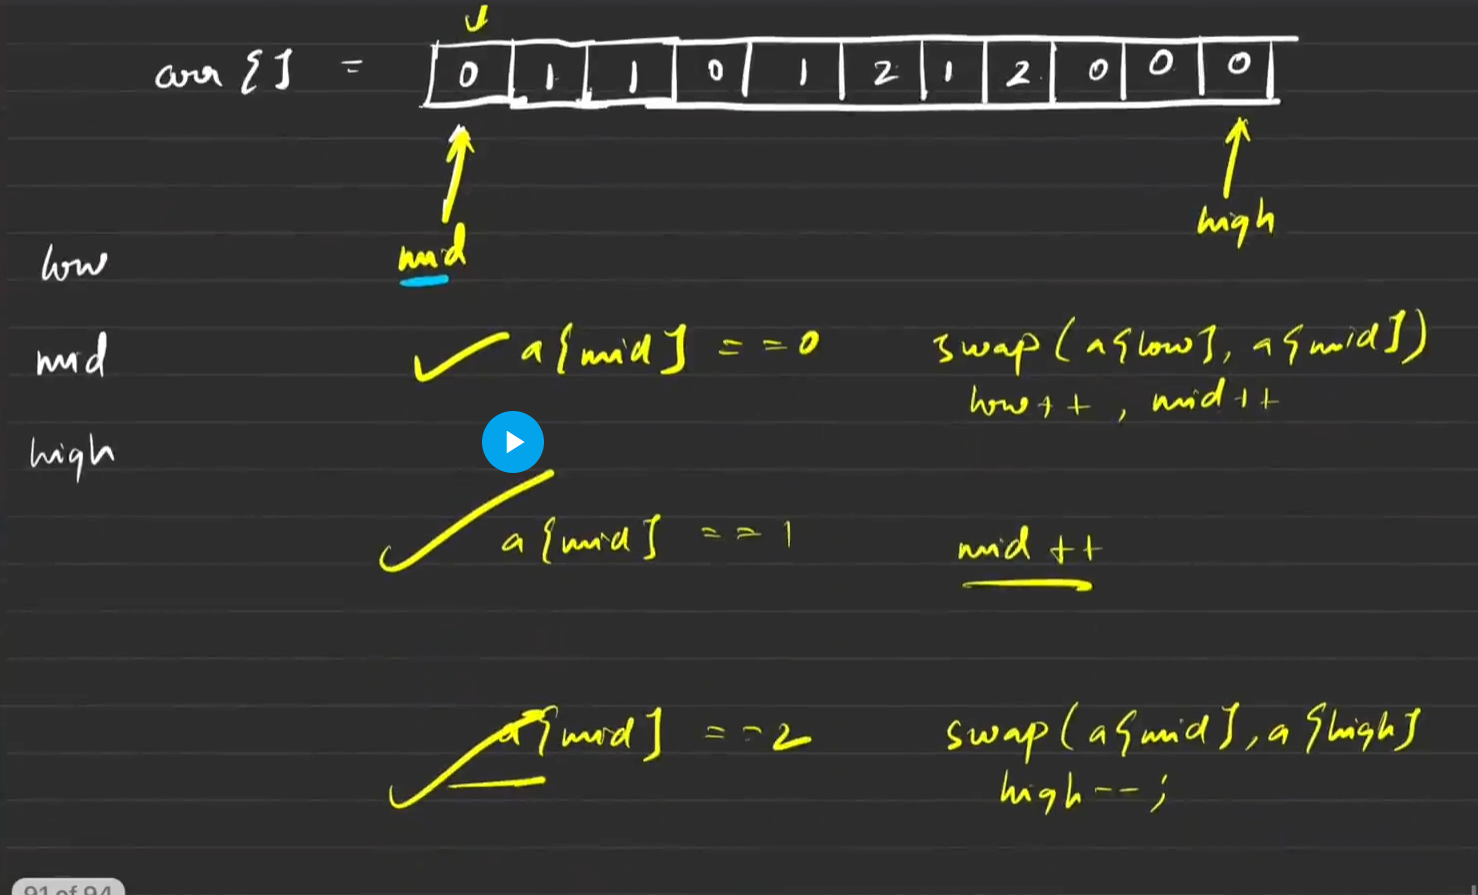 arr[] = 0 1 1 0 1 2 1 2 0 0 0
high
low mid
mid a[mid] == 0 swap(a[low], a[mid])
low++, mid++
high
a[mid] == 1 mid++
a[mid] == 2 swap(a[mid], a[high]
high--;
91 of 94